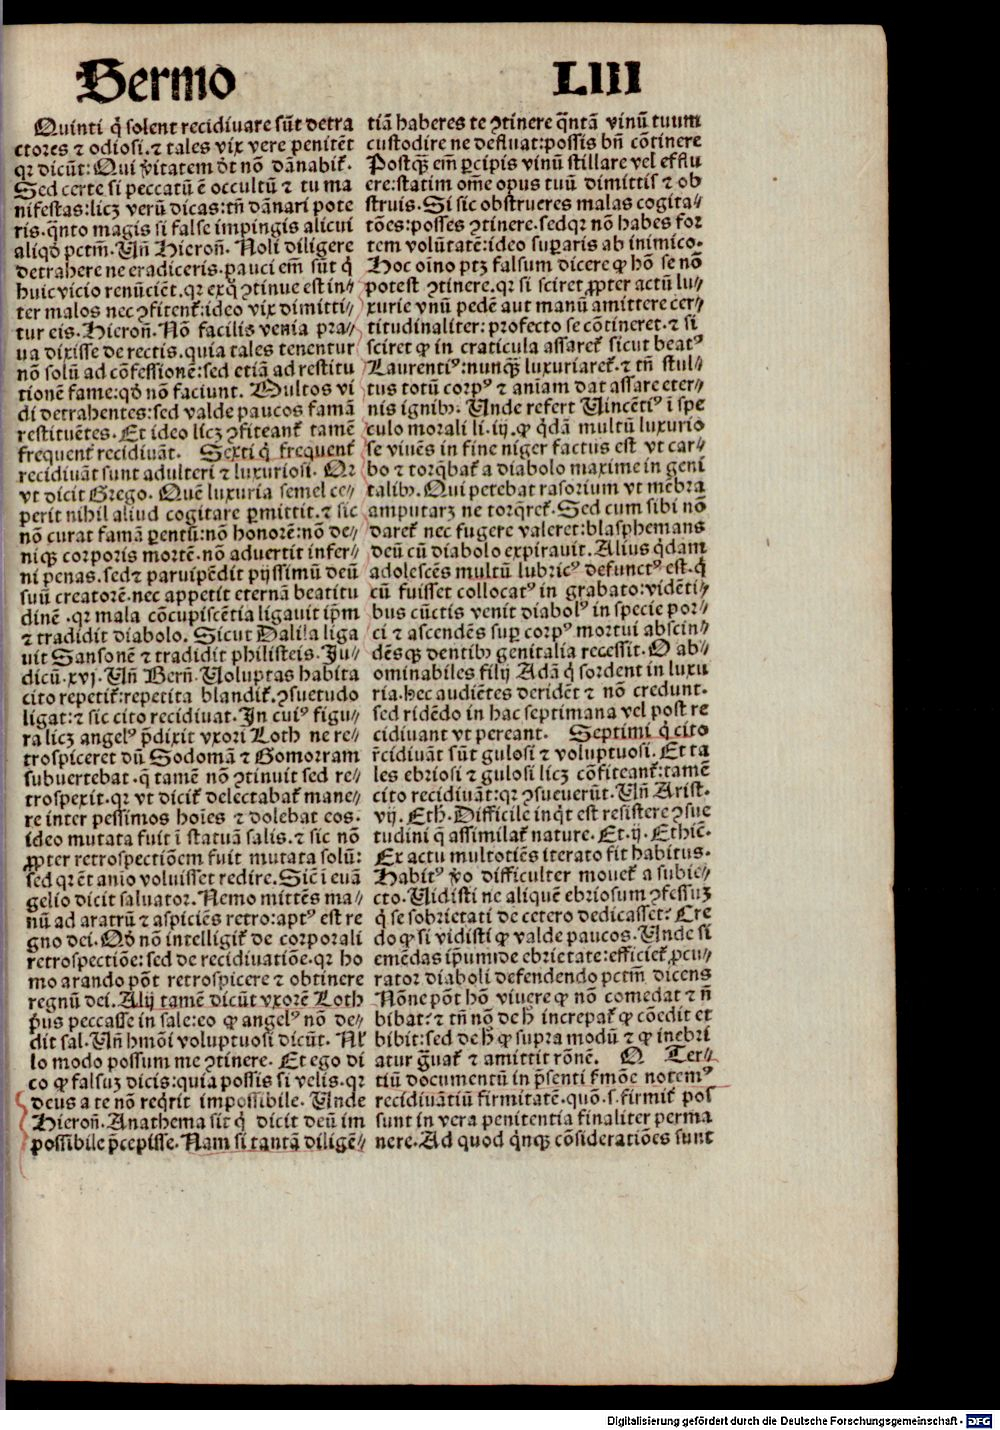 Sermo LIII
Quinti q̇ solent recidiuare sūt detra
ctores ⁊ odiosi.⁊ tales vix vere penitēt
qꝛ dicūt: Qui v̉itatem dt̄ nō dānabit᷑.
Sed certe si peccatū ē occultū ⁊ tu ma
nifestas: licꝫ verū dicas: tn̄ dānari pote
ris. q̄nto magis si false impingis alicui
aliqd̓ pctm̄. Un̄ Hieron̄. Noli diligere
detrahere ne eradiceris. pauci em̄ sūt q̇
huic vicio renūciēt. qꝛ ex q̄ ꝯtinue est in⸗
ter malos nec ꝯfitent᷑: ideo vix dimitti⸗
tur eis. Hieron̄. Nō facilis venia pra⸗
ua dixisse de rectis. quia tales tenentur
nō solū ad cōfessionē: sed etiā ad restitu
tionē fame: qd̓ nō faciunt. Multos vi
di detrahentes: sed valde paucos famā
restituētes. Et ideo licꝫ ꝯfiteant᷑ tamē
frequent᷑ recidiuāt. Sexti q̇ frequent᷑
recidiuāt sunt adulteri ⁊ luxuriosi. Qꝛ
vt dicit Grego. Quē luxuria semel ce⸗
perit nihil aliud cogitare ꝑmittit. ⁊ sic
nō curat famā ꝑentū: nō honorē: nō de⸗
niqꝫ corporis mortē. nō aduertit infer⸗
ni penas. sed ⁊ paruipēdit pijssimū deū
suū creatorē. nec appetit eternā beatitu
dinē. qꝛ mala cōcupiscētia ligauit ip̄m
⁊ tradidit diabolo. Sicut Dalila liga
uit Sansonē ⁊ tradidit philisteis. Ju⸗
dicū. xvj. Un̄ Bern̄. Uoluptas habita
cito repetit᷑: repetita blandit᷑. ꝯsuetudo
ligat: ⁊ sic cito recidiuat. In cuiꝰ figu⸗
ra licꝫ angelꝰ p̄dixit vxori Loth ne re⸗
trospiceret dū Sodomā ⁊ Gomorram
subuertebat. q̄ tamē nō ꝯtinuit sed re⸗
trospexit. qꝛ vt dicit᷑ delectabat᷑ mane⸗
re inter pessimos hoīes ⁊ dolebat eos.
ideo mutata fuit ī statuā salis. ⁊ sic nō
ꝓpter retrospectiōem fuit mutata solū:
sed qꝛ ēt aīo voluisset redire. Sic̄ ī euā
gelio dicit saluator. Nemo mittēs ma⸗
nū ad aratrū ⁊ aspiciēs retro: aptꝰ est re
gno dei. Qd̓ nō intelligit᷑ de corporali
retrospectiōe: sed de recidiuatiōe. qꝛ ho
mo arando pōt retrospicere ⁊ obtinere
regnū dei. Alij tamē dicūt vxorē Loth
p̓us peccasse in sale: eo ꝙ angelꝰ nō de⸗
dit sal. Un̄ hmōi voluptuosi dicūt. Nl̓
lo modo possum me ꝯtinere. Et ego di
co ꝙ falsuꝫ dicis: quia possis si velis. qꝛ
deus a te nō req̇rit impossibile. Unde
Hieron̄. Anathema sit q̇ dicit deū im
possibile p̄cepisse. Nam si tantā diligē⸗
tiā haberes te ꝯtinere q̄ntā vinū tuum
custodire ne defluat: possis bn̄ cōtinere
Postqꝫ em̄ ꝑcipis vinū stillare vel efflu
ere: statim om̄e opus tuū dimittis ⁊ ob
struis. Si sic obstrueres malas cogita⸗
tōes: posses ꝯtinere. sed qꝛ nō habes for
tem volūtatē: ideo suꝑaris ab inimico.
Hoc oīno ptꝫ falsum dicere ꝙ hō se nō
potest ꝯtinere. qꝛ si sciret ꝓpter actū lu⸗
xurie vnū pedē aut manū amittere cer⸗
titudinaliter: profecto se cōtineret. ⁊ si
sciret ꝙ in craticula assaret᷑ sicut beatꝰ
Laurentiꝰ: nunqꝫ luxuriaret᷑. ⁊ tn̄ stul⸗
tus totū corpꝰ ⁊ aniam dat assare eter⸗
nis ignibꝫ. Unde refert Uincētiꝰ ī spe
culo morali li. iij. ꝙ q̇dā multū luxurio
se viuēs in fine niger factus est vt car⸗
bo ⁊ torq̄bat᷑ a diabolo maxime in geni
talibꝫ. Qui petebat rasorium vt mēbra
amputarꝫ ne torq̄ret᷑. Sed cum sibi nō
daret᷑ nec fugere valeret: blasphemans
deū cū diabolo expirauit. Alius q̇dam
adolescēs multū lubricꝰ defunctꝰ est. q̇
cū fuisset collocatꝰ in grabato: vidēti⸗
bus cūctis venit diabolꝰ in specie por⸗
ci ⁊ ascendēs suꝑ corpꝰ mortui abscin⸗
dēsqꝫ dentibꝫ genitalia recessit. O ab⸗
ominabiles filij Adā q̇ sordent in luxu
ria. hec audiētes deridēt ⁊ nō credunt.
sed ridēdo in hac septimana vel post re
cidiuant vt pereant. Septimi q̇ cito
r̄cidiuāt sūt gulosi ⁊ voluptuosi. Et ta
les ebriosi ⁊ gulosi licꝫ cōfiteant᷑: tamē
cito recidiuāt: qꝛ ꝯsueuerūt. Un̄ Arist.
vij. Eth. Difficile inq̇t est resistere ꝯsue
tudini q̄ assimilat᷑ nature. Et. ij. Ethic̄.
Ex actu multotiēs iterato fit habitus.
Habitꝰ v̓o difficulter mouet᷑ a subie⸗
cto. Uidisti ne aliquē ebriosum ꝯfessuꝫ
q̇ se sobrietati de cetero dedicasset? Cre
do ꝙ si vidisti ꝙ valde paucos. Unde si
emēdas ip̄um de ebrietate: efficiet᷑ ꝓcu⸗
rator diaboli defendendo pctm̄ dicens
Nōne pōt hō viuere ꝙ nō comedat ⁊ n̄
bibat? ⁊ tn̄ nō de h̓ increpat᷑ ꝙ cōedit et
bibit: sed de h̓ ꝙ supra modū ⁊ ꝙ inebri
atur g̊uat᷑ ⁊ amittit rōnē. O Ter⸗
tiū documentū in p̄senti ẜmōe notemꝰ
recidiuātiū firmitatē. quō. s. firmit᷑ pos
sunt in vera penitentia finaliter perma
nere. Ad quod q̇nqꝫ cōsideratiōes sunt
Digitalisierung gefördert durch die Deutsche Forschungsgemeinschaft - DFG